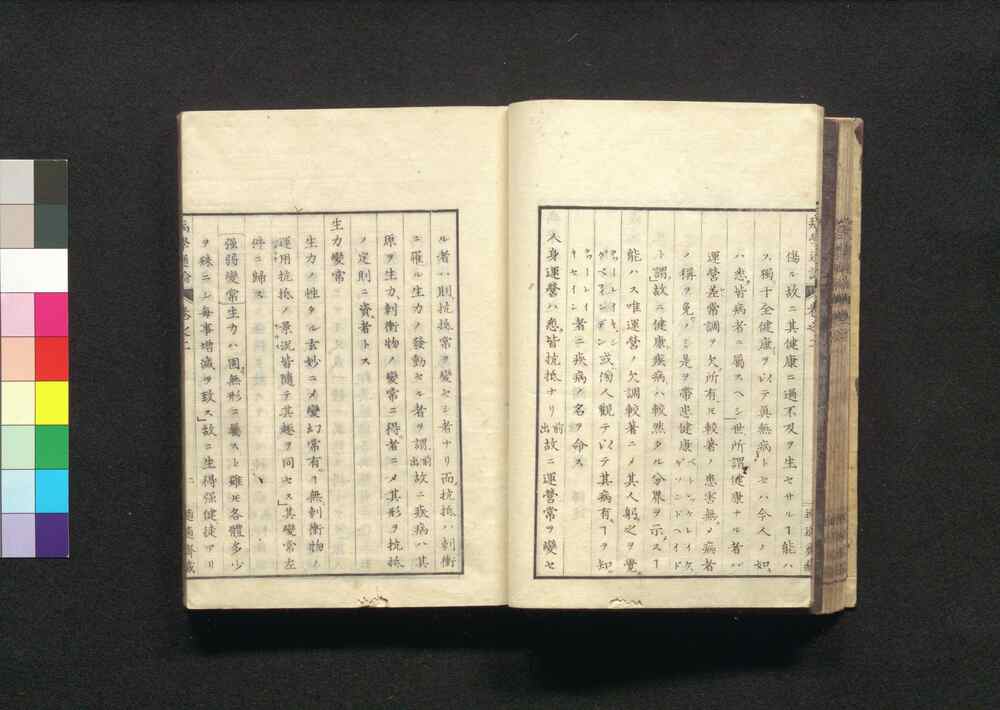 傷ル故ニ其健康ニ過不及ヲ生セサルヿ能ハ
ス獨十全健康ヲ以テ眞無病トセハ今人ノ如
ハ悉皆病者ニ屬スヘシ世所謂健康ナル者ハ
運營差常調ヲ欠所有モ較著ノ患害無メ病者
ノ稱ヲ免ノミ是ヲ帶患健康
ト謂故ニ健康疾病ハ較然タル分界ヲ示スヿ
能ハス唯運營ノ欠調較著ニメ其人躬之ヲ覺
或傷人觀テ以テ其病有ヿヲ知
者ニ疾病ノ名ヲ命ス
人身運營ハ悉皆抵抗ナリ出前故ニ運營常ヲ變セ
ル者ハ則抗抵常ヲ變セシ者ナリ而抗抵ハ刺衝
ニ罹ル生力ノ發動セル者ヲ謂出前故ニ疾病ハ其
原ヲ生力刺衝物ノ變常ニ得者ニメ其形ヲ抗抵
ノ定則ニ資者トス
生力變常
生力ノ性タル玄妙ニメ變幻常有ヿ無刺衝物ノ
運用抗抵ノ景況皆隨テ其趣ヲ同セス其變常左
件ニ歸ス
强弱變常 生力ハ固無形ニ屬スト雖モ各體多少
ヲ殊ニシ毎事增減ヲ致ス故ニ生得强健徒アリ